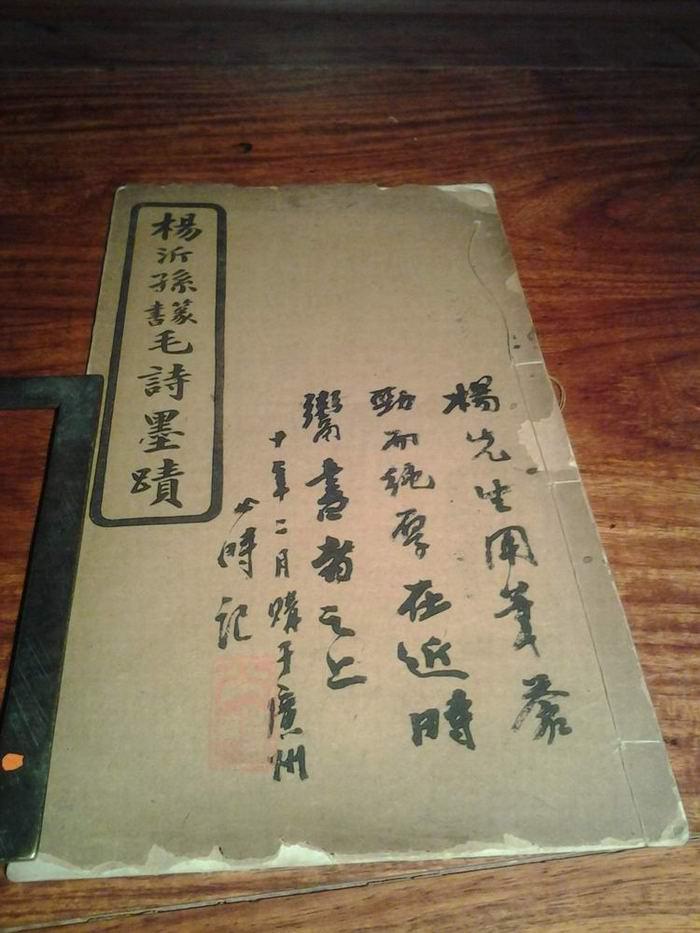 楊先生用筆蒼
勁而純厚在近時
鬻書者之上
十年二月購于廣州
少時記
楊沂孫篆書毛詩墨蹟